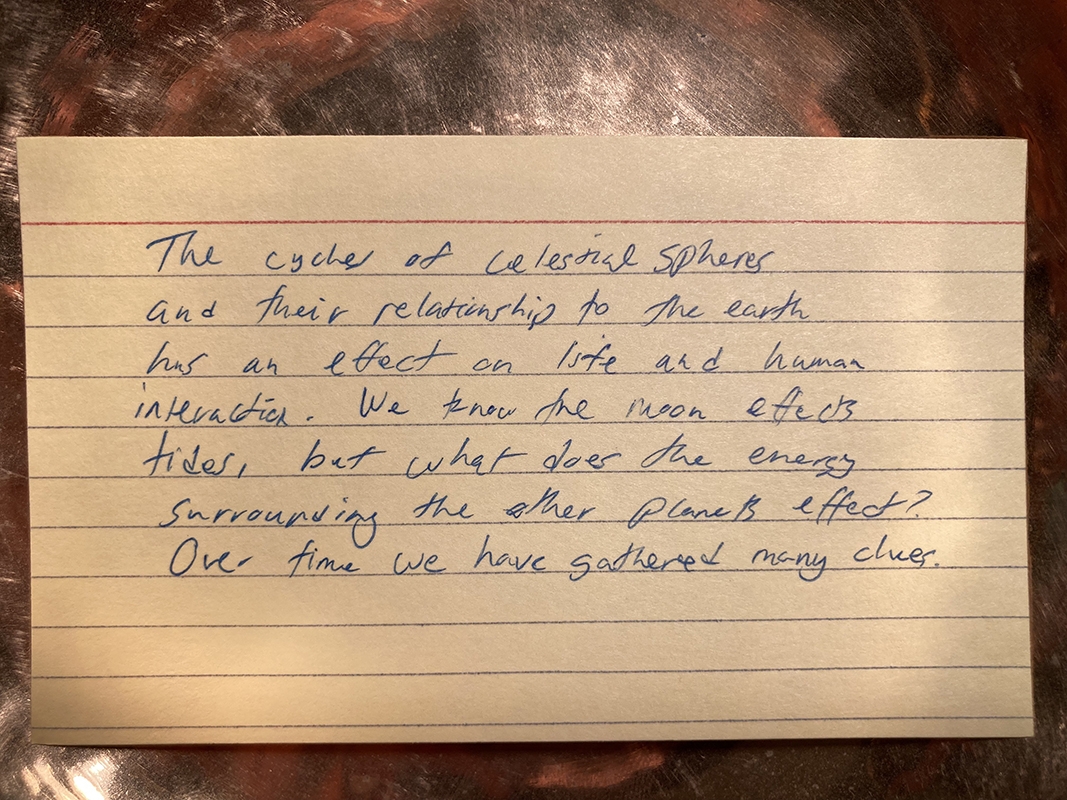 The cycles of celestial spheres
and their relationship to the earth
has an effect on life and human
interaction. We know the moon effects
tides, but what does the energy
surrounding the other planets effect?
Over time we have gathered many clues.